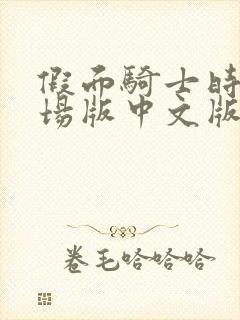 假面騎士時
場版中文版
卷毛哈哈哈